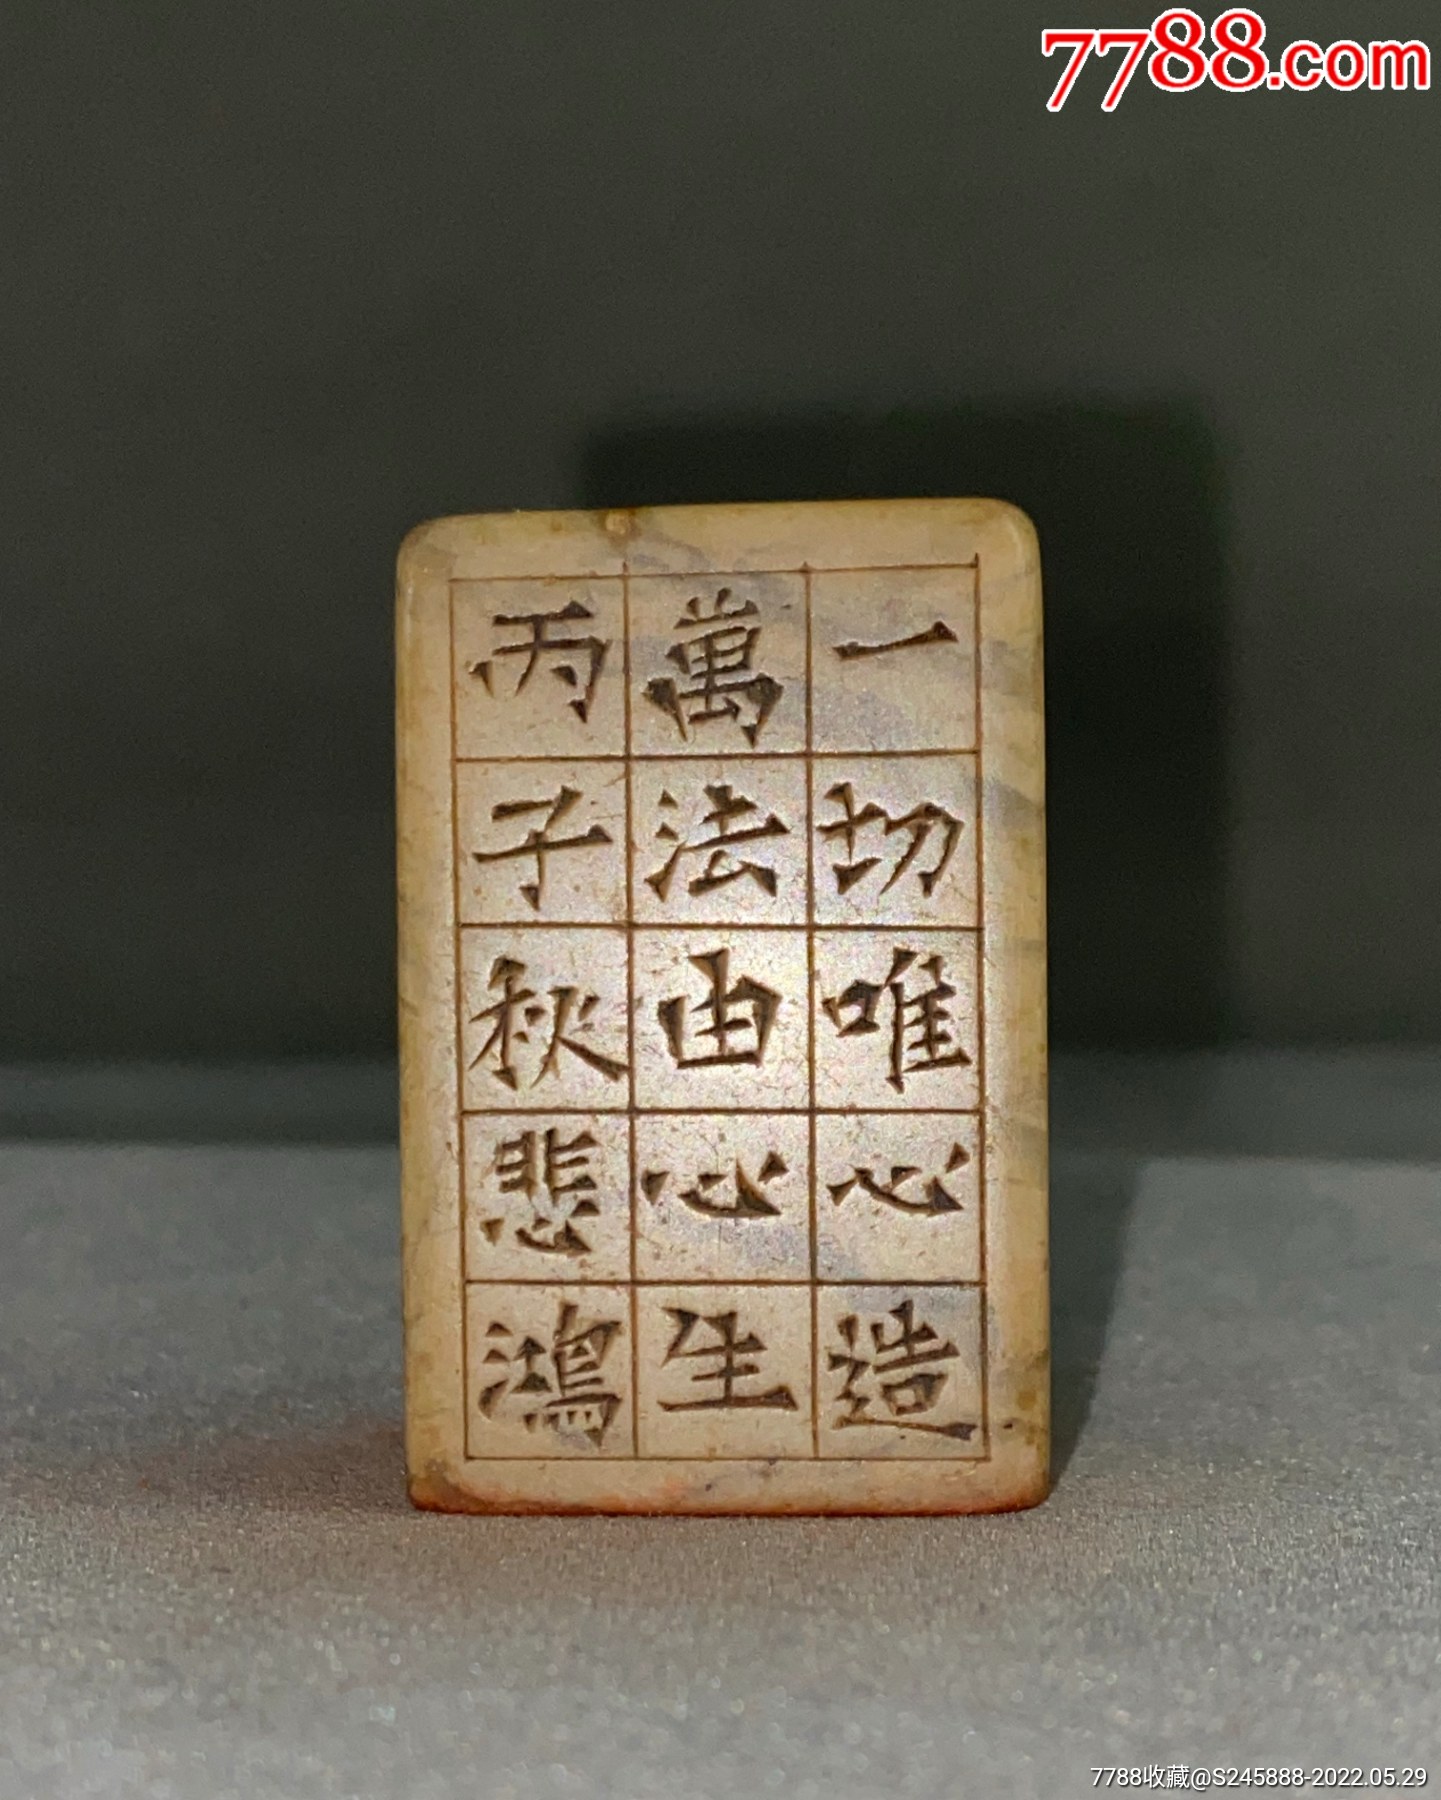 7788.com
一切唯心造
萬法由心生
丙子秋悲鴻
7788收藏@S245888-2022.05.29